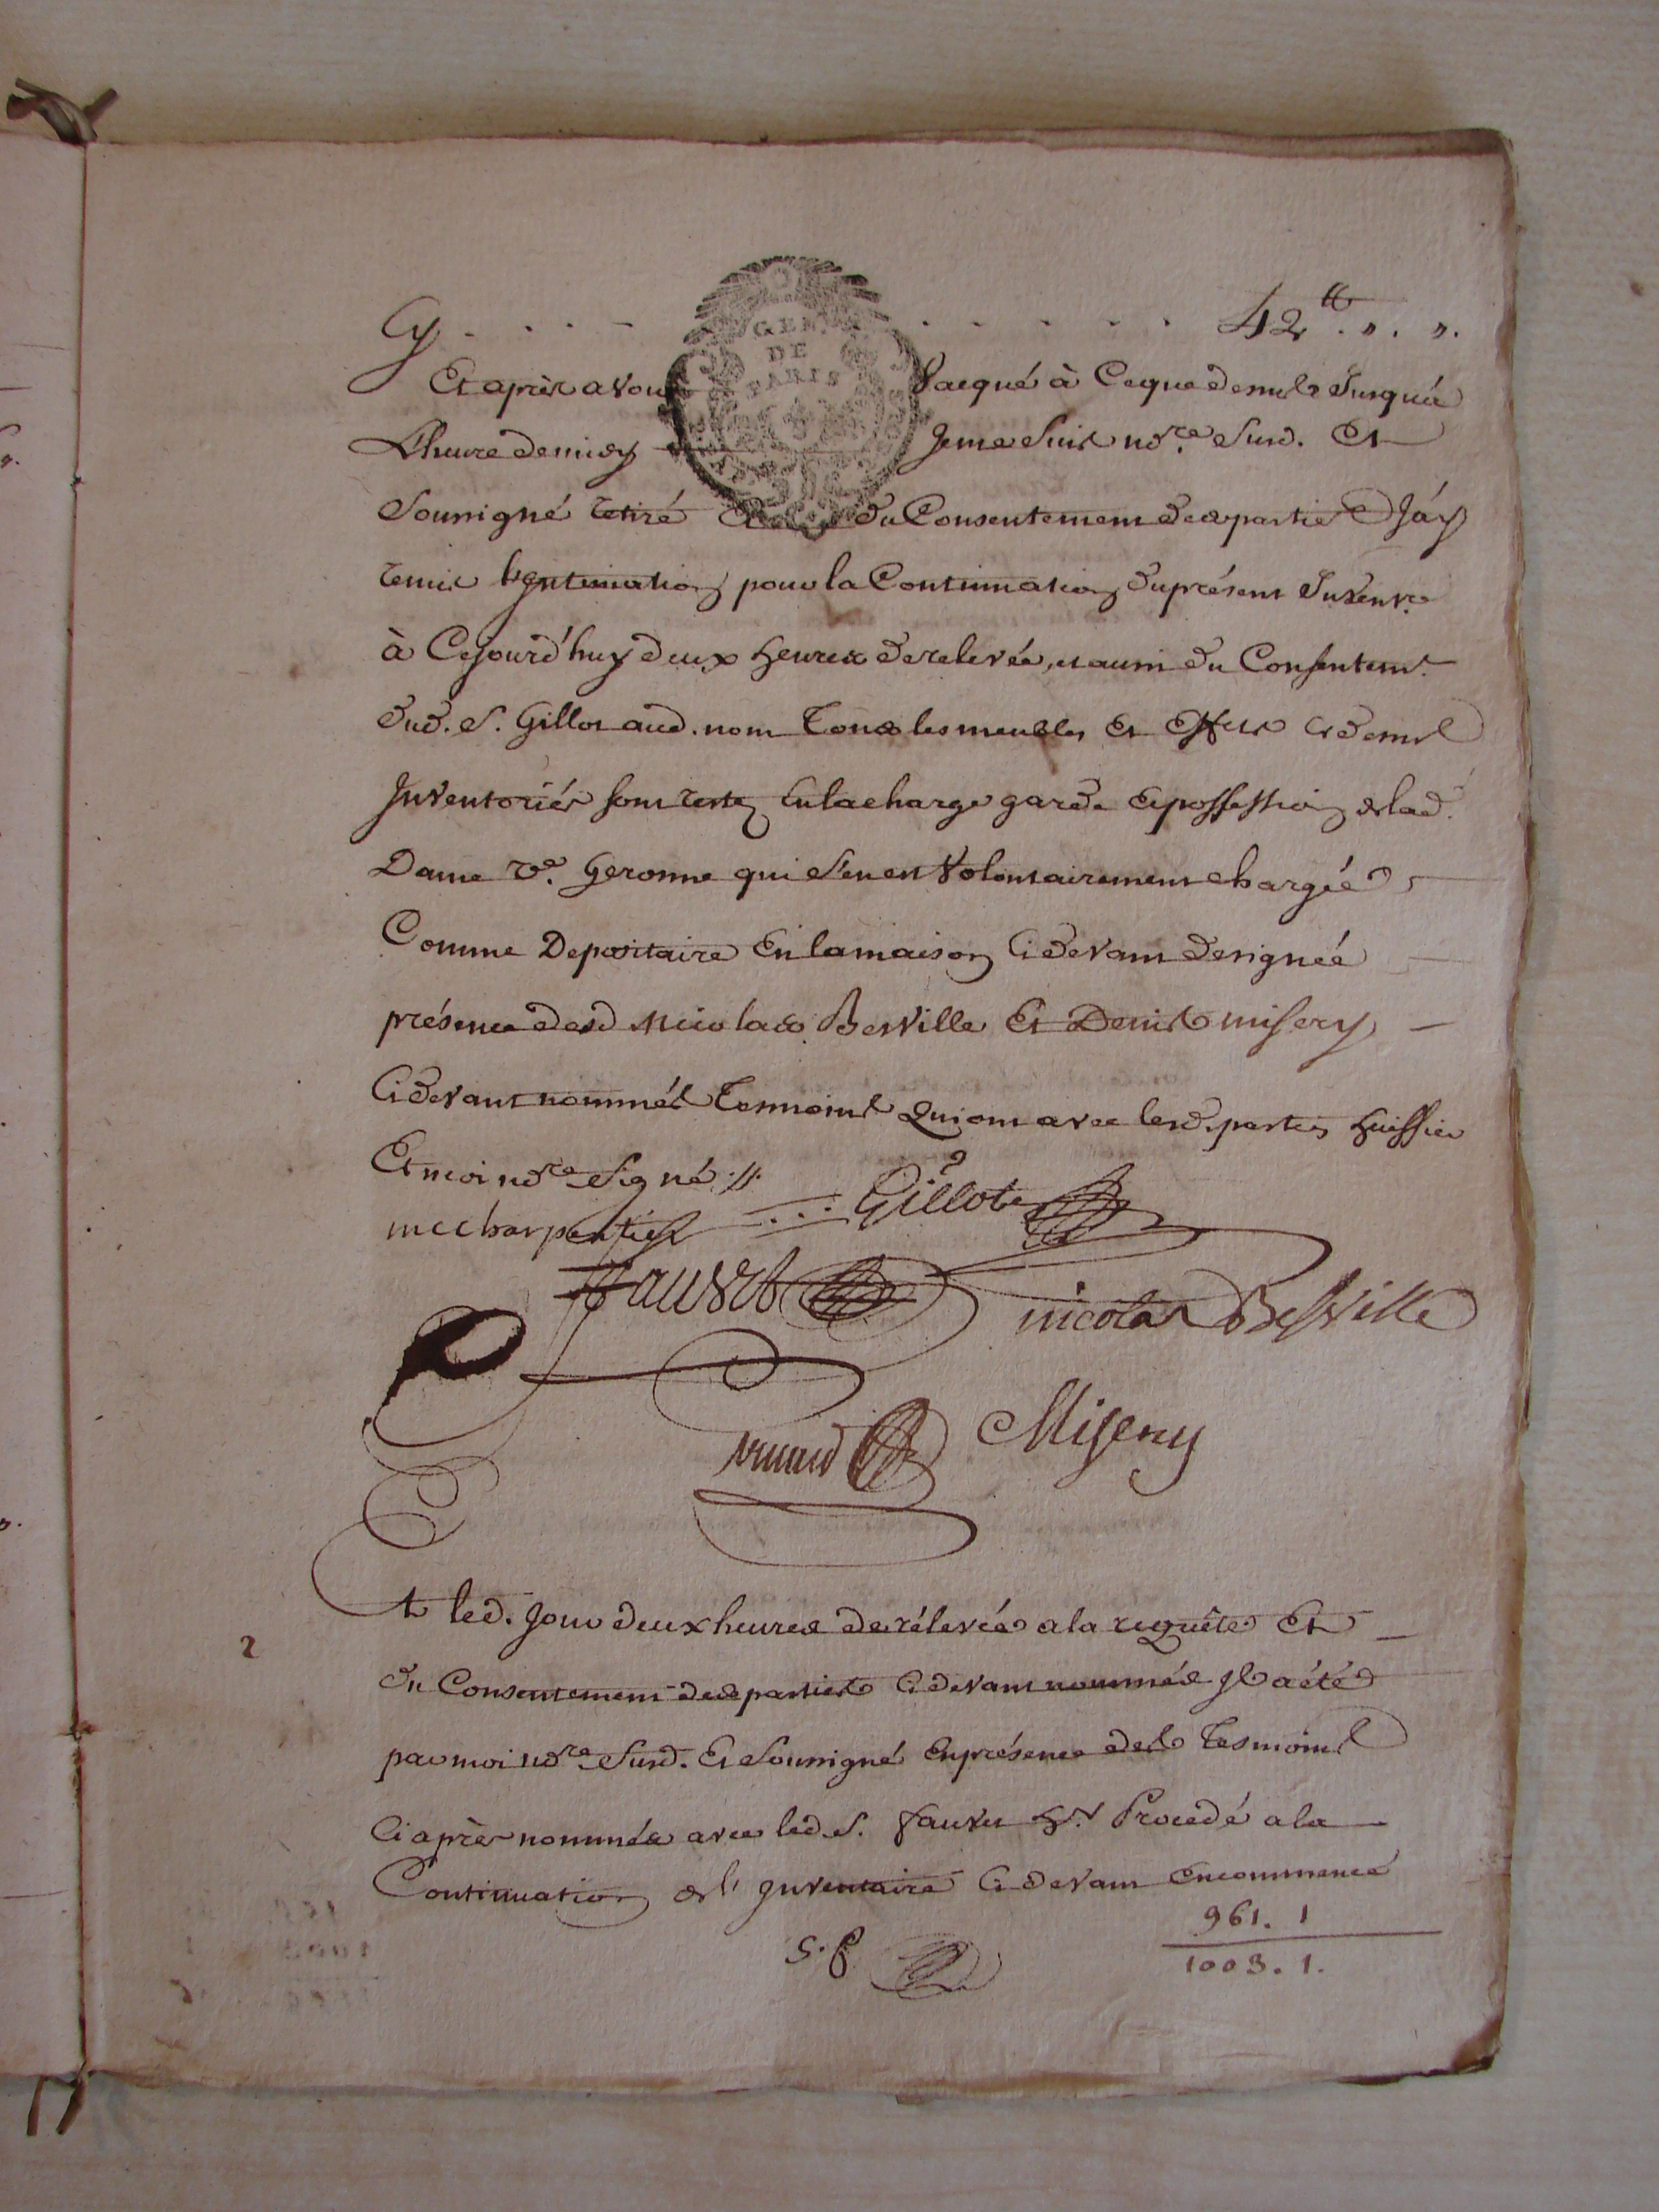 Cy . . . - . . . . . . 42 ₶ . „ . „ .
GEN.
DE
PARIS
Et après avoir Vacqué à Ceque dessus Jusqu'à
L'heure de midy Je me Suis no.re Susd. Et
Soussigné retiré Et du Consentement des parties J'ay
remis l'Intimation pour la Continuation du présent Invent.re
à Cejourd'huy deux heures de relevée, et aussi du Consentem.t
dud. S. Gillot aud. nom Tous les meubles Et Effets Cy dessus
Inventoriés sont restez En la charge garde Et possession de lad.
Dame v.e Geronne qui s'en est Volontairement chargée
Comme Depositaire En la maison Ci devant designée
présence desd Nicolas Besville Et Denis misery
Ci devant nommés Tesmoins Qui ont avec lesd. parties huissier
Et moi no.re Signé .//.
mccharpentier Gillot
ffauvet nicolas Besville
Misery
Et led. Jour deux heures de rélevée a la requête Et
2
du Consentement des parties Ci devant nommées Il a été
par moi no.re Susd. Et Soussigné En présence des Tesmoins
Ci après nommés avec led. S. fauvet h.r Procedé a la
Continuation de l' Inventaire Ci devant Encommencé
961. 1
1003. 1.